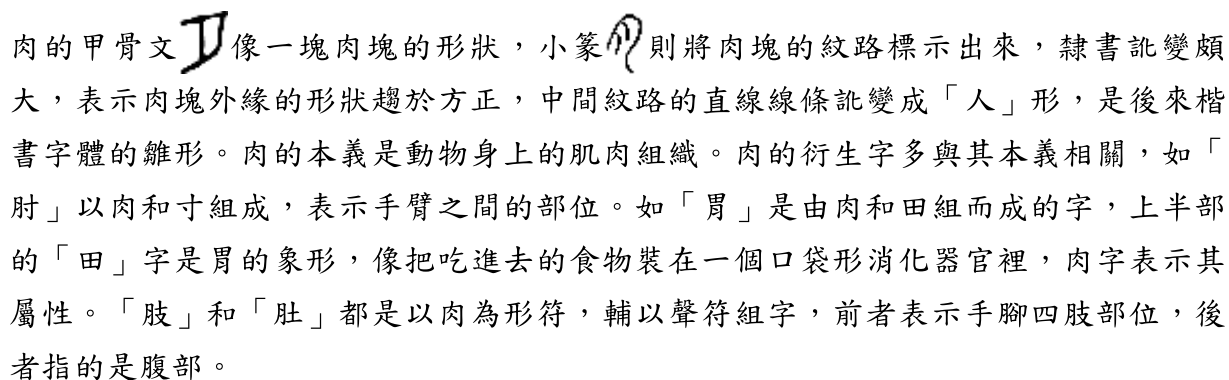 肉的甲骨文像一塊肉塊的形狀，小篆則將肉塊的紋路標示出來，隸書訛變頗
大，表示肉塊外緣的形狀趨於方正，中間紋路的直線線條訛變成「人」形，是後來楷
書字體的雛形。肉的本義是動物身上的肌肉組織。肉的衍生字多與其本義相關，如「
肘」以肉和寸組成，表示手臂之間的部位。如「胃」是由肉和田組而成的字，上半部
的「田」字是胃的象形，像把吃進去的食物裝在一個口袋形消化器官裡，肉字表示其
屬性。「肢」和「肚」都是以肉為形符，輔以聲符組字，前者表示手腳四肢部位，後
者指的是腹部。